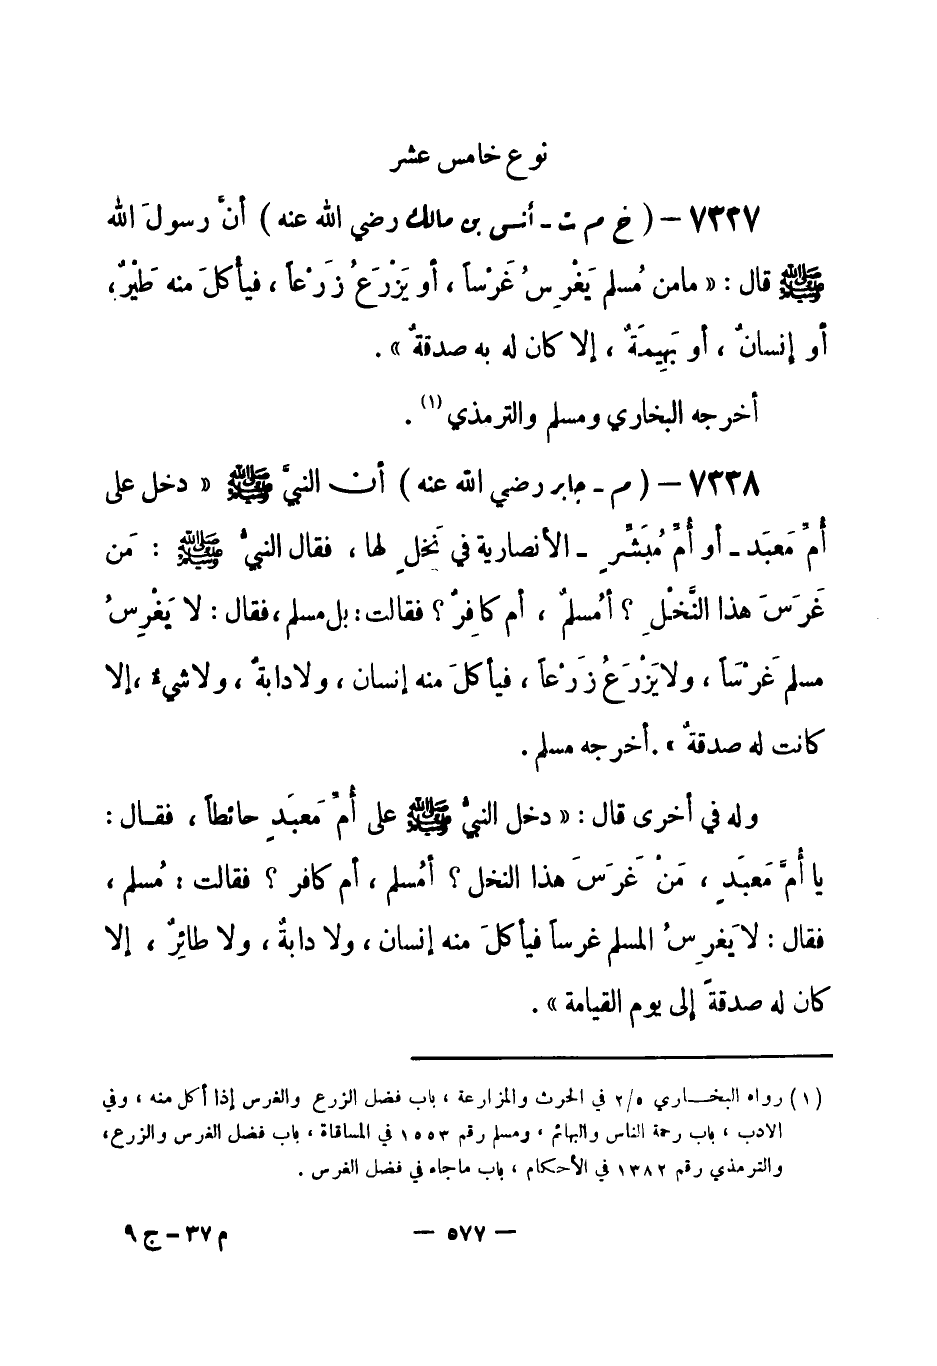 نوع خامس عشر
٧٣٣٧ – ( خ م ت - أنس بن مالك رضي الله عنه ) أنَّ رسولَ الله
ﷺ قال : « مامن مُسلم يَغْرِسُ غَرْساً ، أو يَزْرَعُ زَرْعاً ، فيأكلَ منه طَيْرٌ،
أو إنسانٌ ، أو بَهِيمَةٌ ، إلا كان له به صدقةٌ » .
أخرجه البخاري ومسلم والترمذي (١) .
٧٣٣٨ – ( م - جابر رضي الله عنه ) أن النبيَّ ﷺ « دخل على
أُمِّ مَعبَد - أو أُمِّ مُبَشِّرٍ - الأنصارية في نَخلٍ لها ، فقال النبيُّ ﷺ : مَن
غَرَسَ هذا النَّخْلِ ؟ أمُسلمٌ ، أم كافِرٌ ؟ فقالت : بل مسلم ، فقال : لا يَغْرِسُ
مسلم غَرْسَاً ، ولا يَزْرَعُ زَرْعاً ، فيأكلَ منه إنسان ، ولا دابةٌ ، ولا شيءٌ ، إلا
كانت له صدقةٌ » . أخرجه مسلم .
وله في أخرى قال : « دخل النبيُّ ﷺ على أُمِّ مَعبَدٍ حائطاً ، فقـال :
يا أُمَّ مَعبَدٍ ، مَنْ غَرَسَ هذا النخل ؟ أمُسلم ، أم كافر ؟ فقالت : مُسلم ،
فقال : لا يَغرِسُ المسلم غرساً فيأكلَ منه إنسان ، ولا دابةٌ ، ولا طائِرٌ ، إلا
كان له صدقةً إلى يوم القيامة » .
(١) رواه البخـــاري ٢/٥ في الحرث والمزارعة ، باب فضل الزرع والغرس إذا أكل منه ، وفي
الادب ، باب رحمة الناس والبهائم ، ومسلم رقم ١٥٥٣ في المساقاة ، باب فضل الغرس والزرع،
والترمذي رقم ١٣٨٢ في الأحكام ، باب ماجاء في فضل الغرس .
— ٥٧٧ —
م ٣٧ – ج ٩